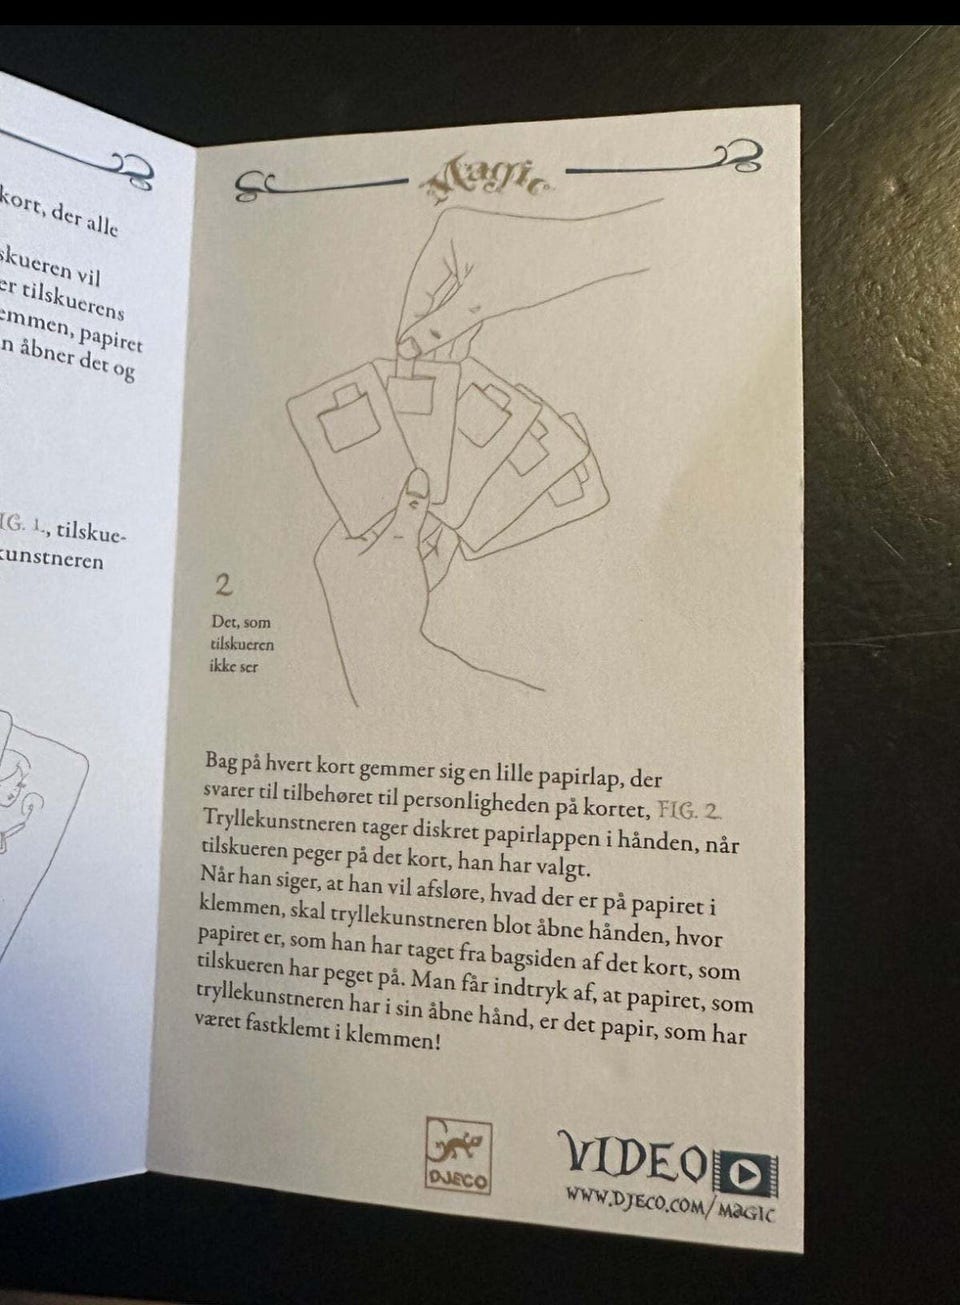 kort, der alle
skueren vil
er tilskuerens
emmen, papiret
n åbner det og
IG. 1., tilskue-
kunstneren
Magic
2
Det, som
tilskueren
ikke ser
Bag på hvert kort gemmer sig en lille papirlap, der
svarer til tilbehøret til personligheden på kortet, FIG. 2.
Tryllekunstneren tager diskret papirlappen i hånden, når
tilskueren peger på det kort, han har valgt.
Når han siger, at han vil afsløre, hvad der er på papiret i
klemmen, skal tryllekunstneren blot åbne hånden, hvor
papiret er, som han har taget fra bagsiden af det kort, som
tilskueren har peget på. Man får indtryk af, at papiret, som
tryllekunstneren har i sin åbne hånd, er det papir, som har
været fastklemt i klemmen!
DJECO
VIDEO
WWW.DJECO.COM/MAGIC